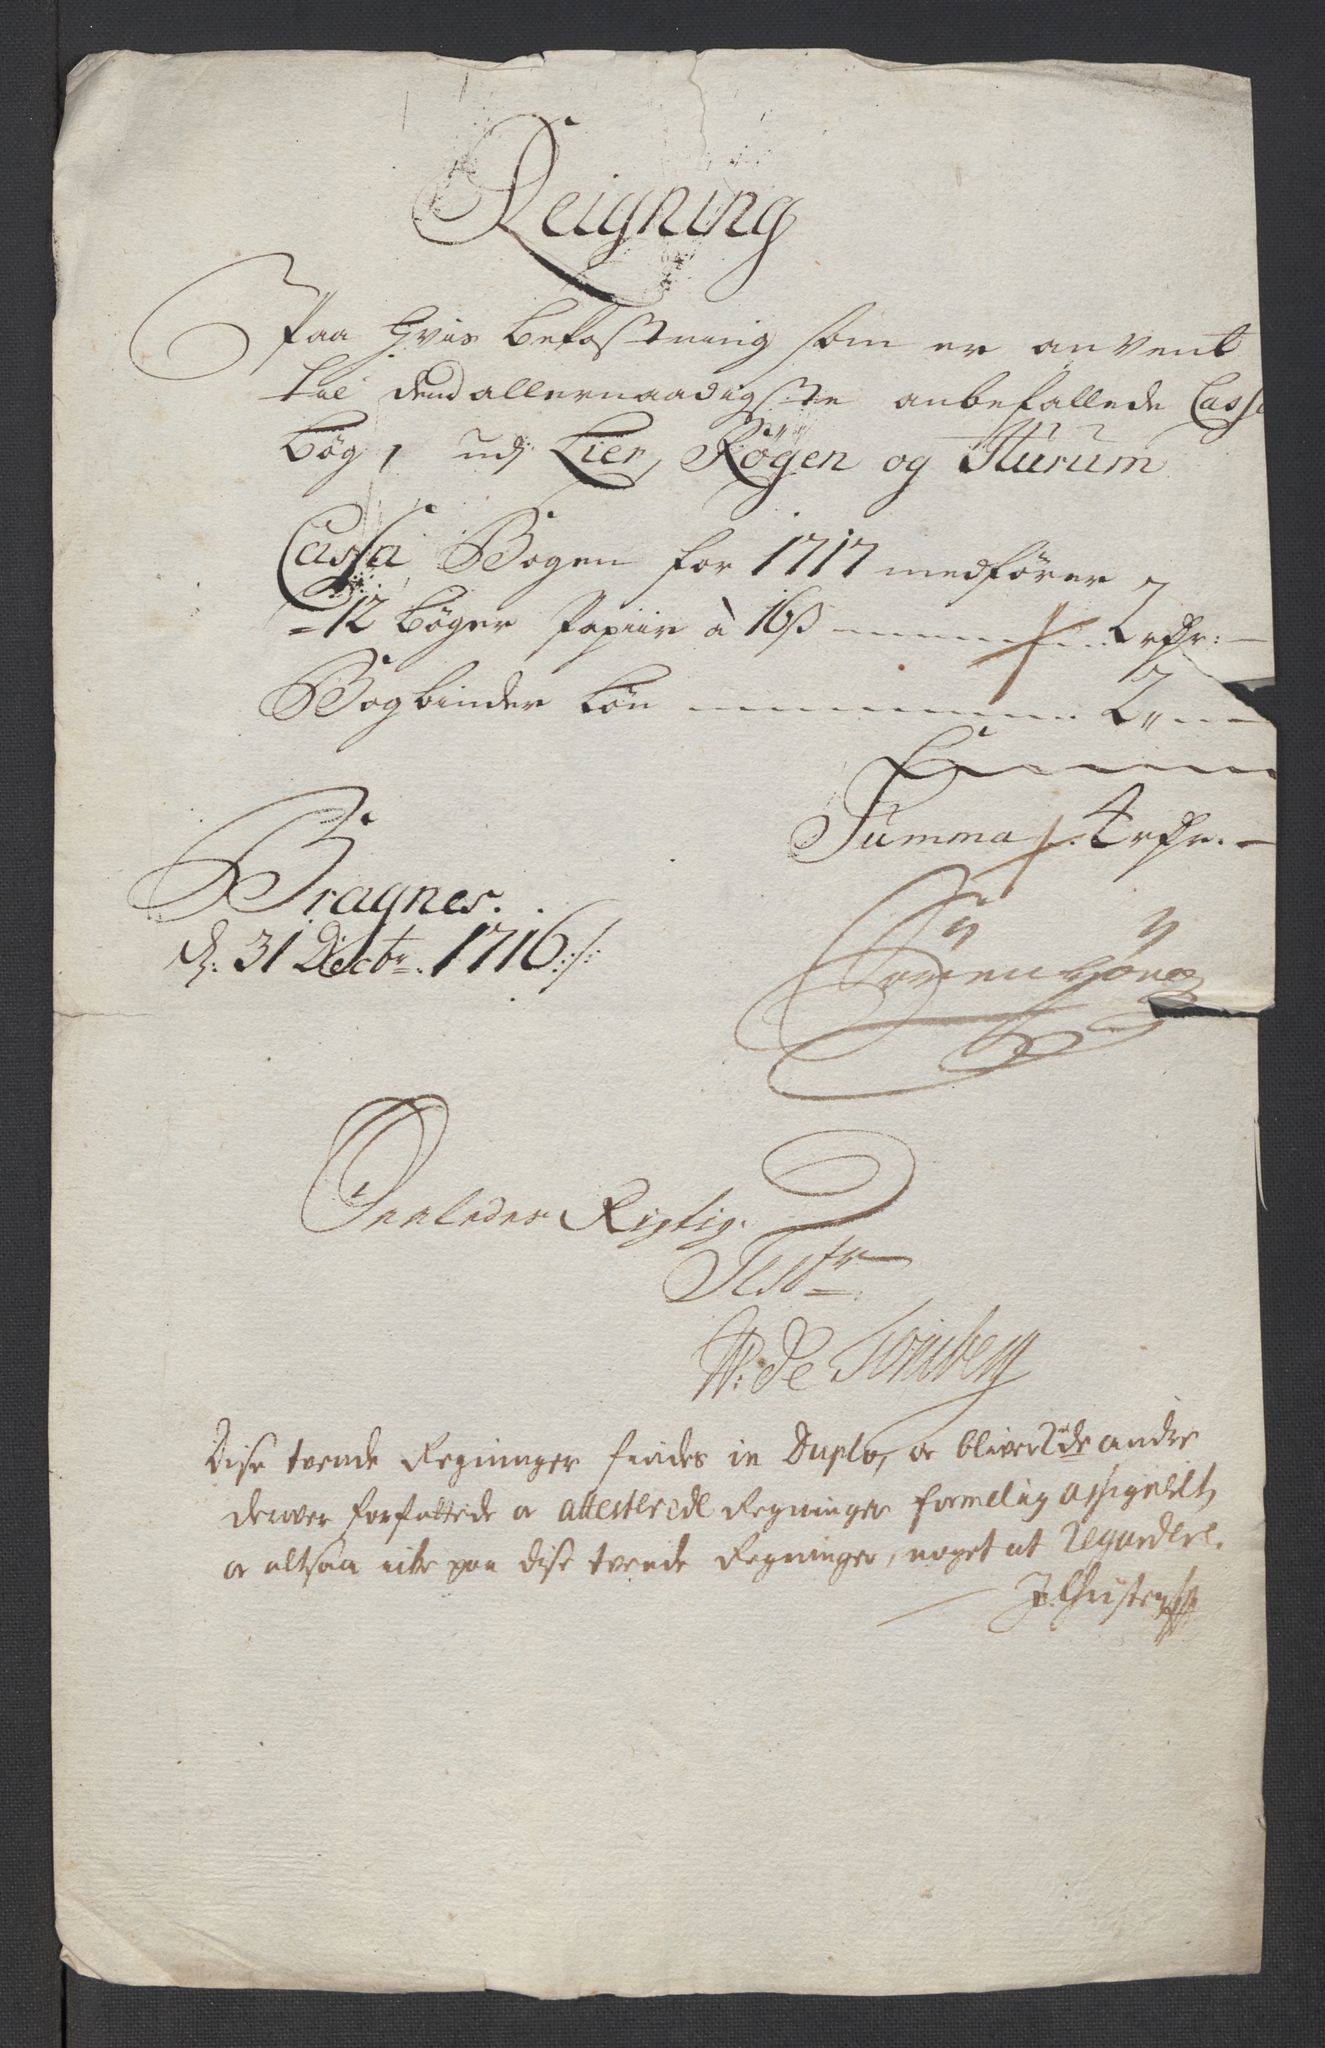 Reigning
Paa hvis bekostning som er anvent
til dend allernaadigste anbefallede Cassa
bog, udj Lier, Røgen og Hurum
Cassa Bogen for 1717 medfører
12 bøger Papiir à 16ß 2 rdr: —
Bogbinder løn 2 „ —
Summa 4 rdr. —
Bragnes.
d. 31 Decbr. 1716 ./.
Søren
Saaledes Rigtig.
Test:
W: de Tonsberg
Dise tvende Regninger findes in Duplo, oc bliver de andre
derover forfattede oc attesterede Regninger formelig assignerit,
oc altsaa icke paa dise tvende Regninger, noget at regardere.